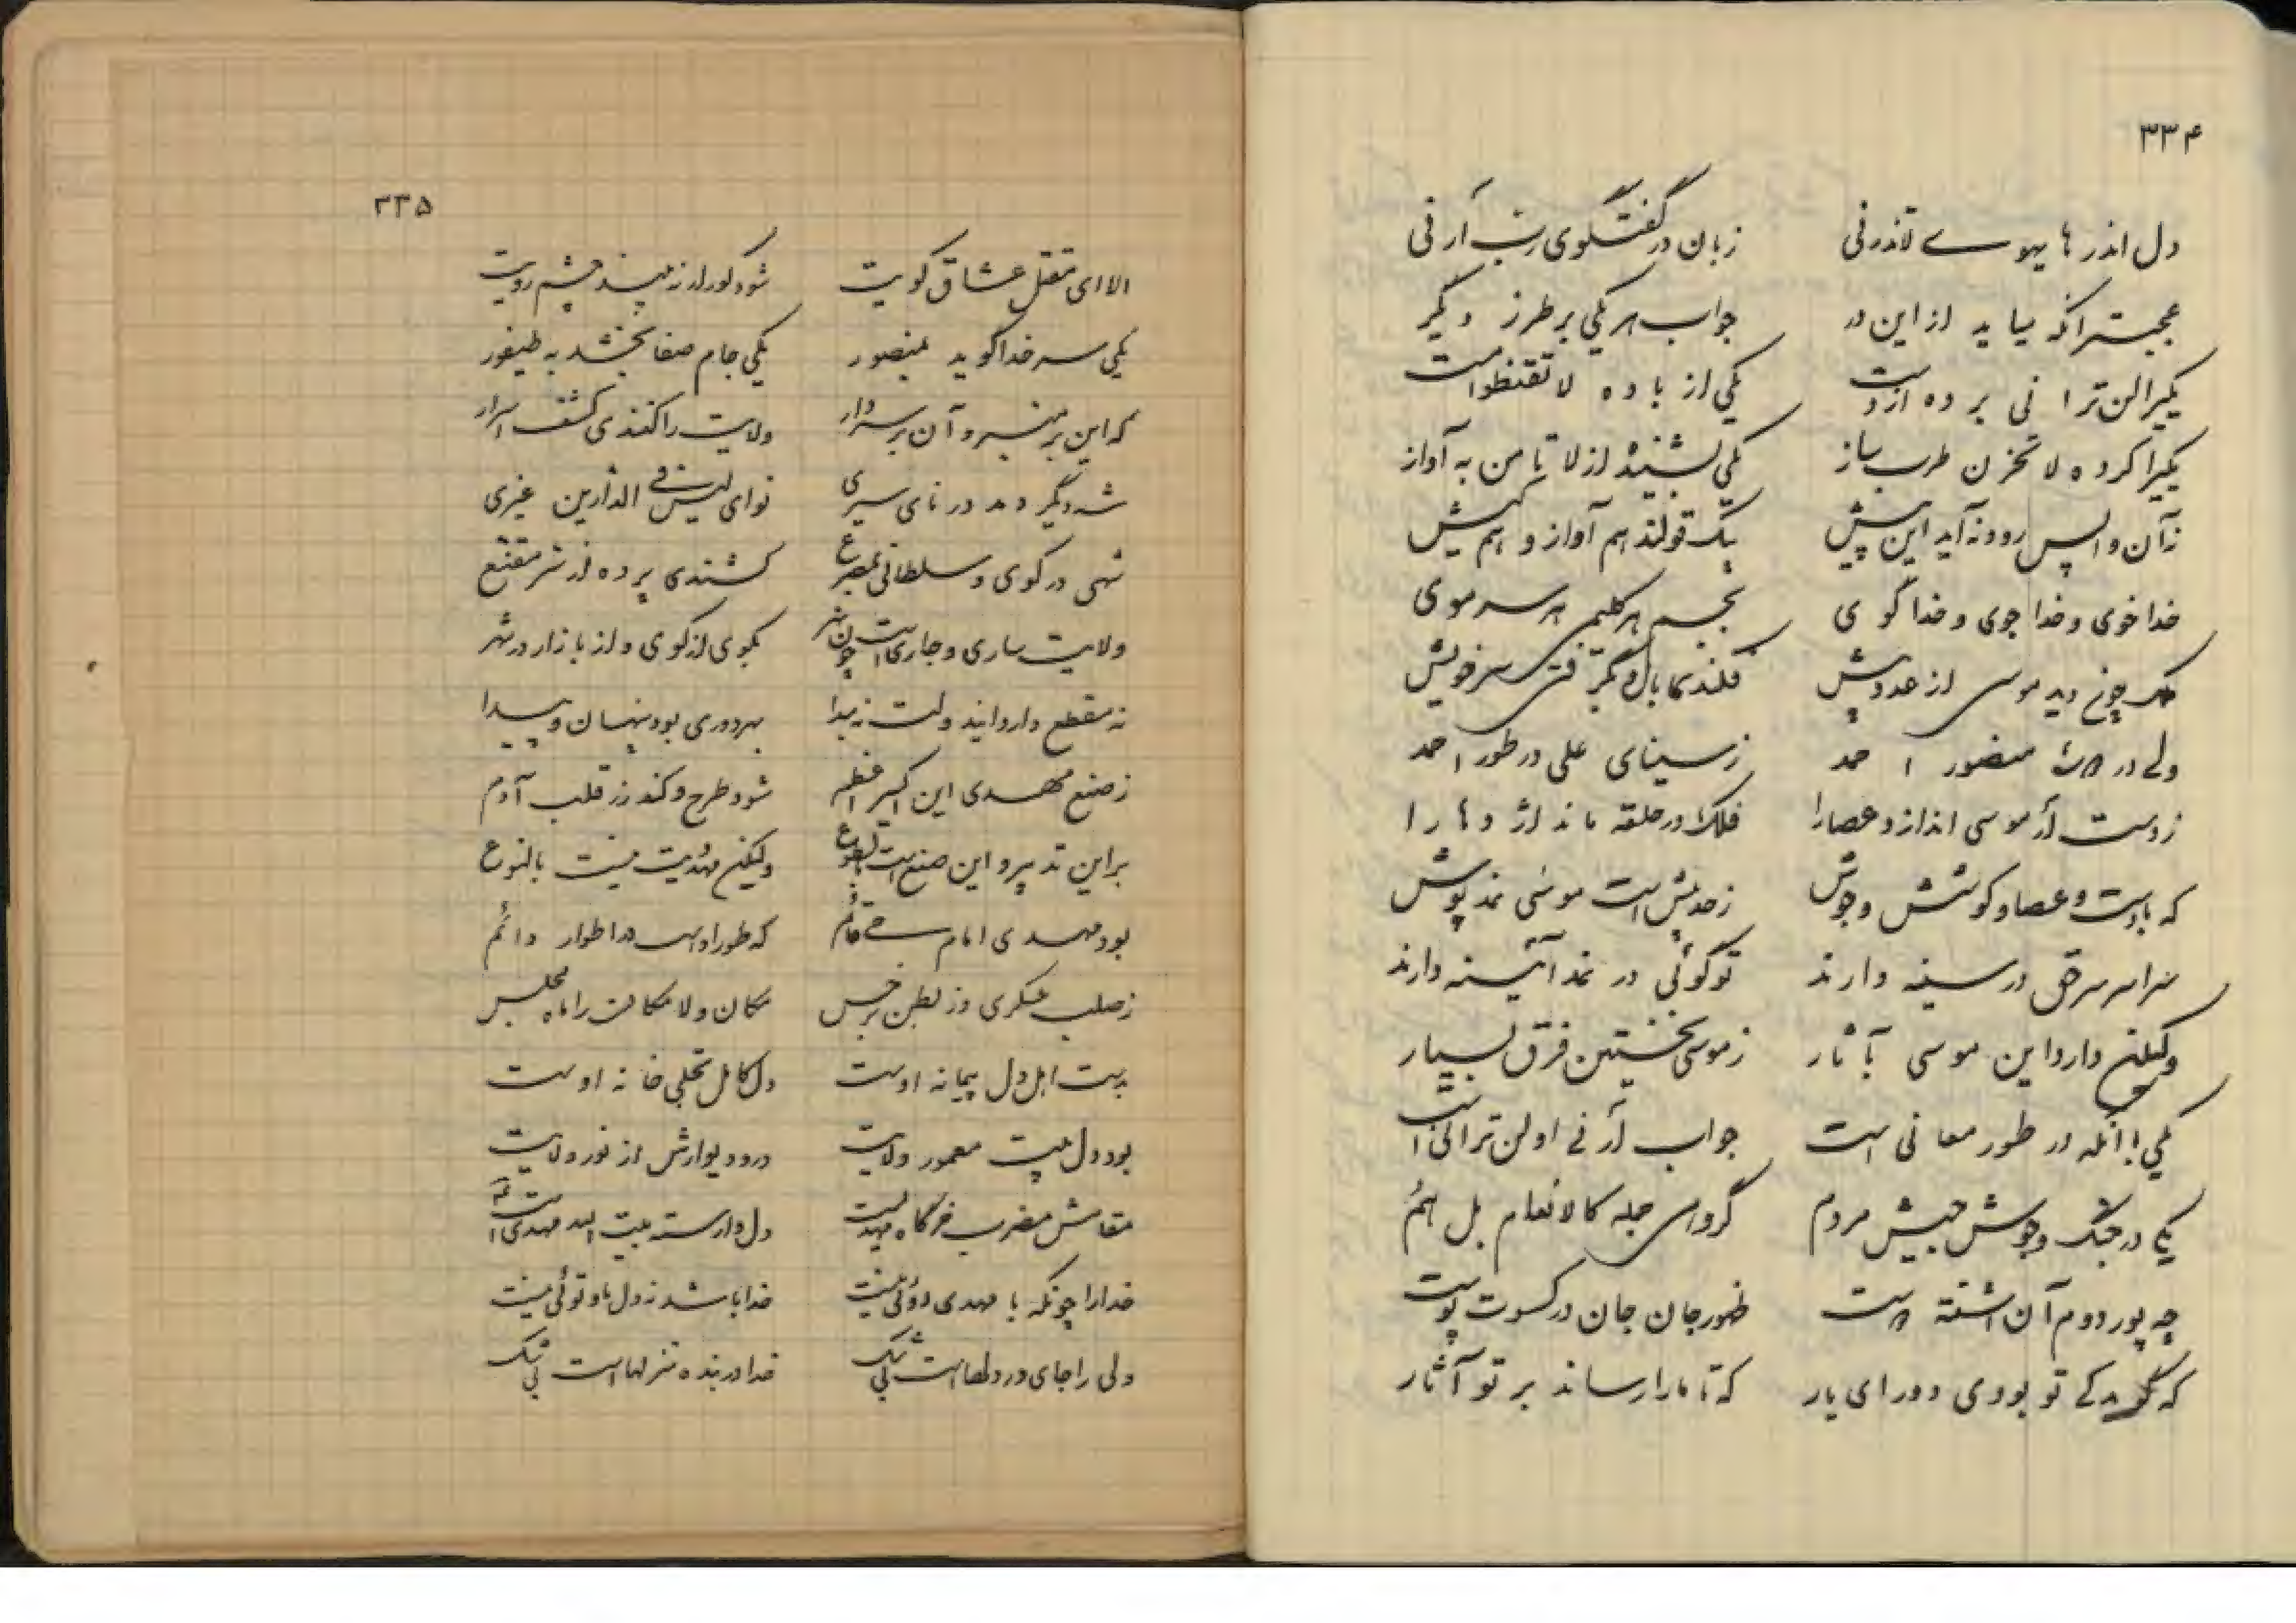 ۳۳۴
دل اندر های هوی لاتذرنی زبان در گفتگوی رب أرنی
عجبتر آنکه نیاید از این در جواب هر یکی بر طرز دیگر
یکیرا لن ترانی برده از دست یکی از باده لاتقنطوا مست
یکیرا کرده لا تحزن طرب ساز یکی بشنیده از لا تأمن به آواز
نه آن واپس رود نه آید این پیش بیک قولند هم آواز و هم کیش
خدا خوی و خدا جوی و خدا گوی بجسم هر کلیمی هر سر موی
ملک چون دید موسی از عدو پیش فکند سر خویش
ولی در منصور احمد ز سینای علی در طور احمد
ز دست ار موسی اندازد عصا را فلک در حلقه ماند اژدها را
که با دست و عصا و کوشش و جوش ز حد بیش است موسی نمد پوش
سراسر سر حق در سینه دارند تو گوئی در نمد آئینه دارند
ولیکن دارد این موسی بآثار ز موسی نخستین فرق بسیار
یکی با آنکه در طور معانی است جواب أرنی او لن ترانی است
یکی در جنگ و جوش جیش مردم گروهی جمله کالانعام بل هم
چه پور دوم آن ظهور جان جان در کسوت پوست
که تو بودی دور ای یار که تا ما را رساند بر تو آثار
۳۳۵
الا ای مقتل عشاق کویت شود کور ار نه بیند چشم رویت
یکی سر خدا گوید بمنصور یکی جام صفا بخشد به طیفور
که این بر منبر و آن بر سر دار ولایت را کنندی کشف اسرار
شه دیگر دمد در نای سیری نوای لیس فی الدارین غیری
شهی در کوی و سلطانی بمصرع کشندی پرده از سر مقنع
ولایت ساری و جاری است چون نهر بکوی از کوی و از بازار در شهر
نه مقطع دارد ایند ولت نه مبدا بهر دوری بود پنهان و پیدا
ز صنع مهدی این اکسیر اعظم شود طرح و کند زر قلب آدم
بر این تدبیر و این صنع است مطبوع ولیکن مهدیت نیست بالنوع
بود مهدی امام حی قائم که طور اوست در اطوار دائم
ز صلب عسکری وز بطن نرجس مکان و لامکانت را مه مجلس
بدست اهل دل پیمانه اوست دل کامل تجلی خانه اوست
بود دل بیت معمور ولایت در و دیوارش از نور ولایت
مقامش مضرب خرگاه مهدیست دل وارسته بیت الله مهدی است
خدا را چونکه با مهدی دوئی نیست خدا باشد ز دل ما و توئی نیست
ولی را جای در دلهاست بی شک خدا در بنده منزلهاست بی شک